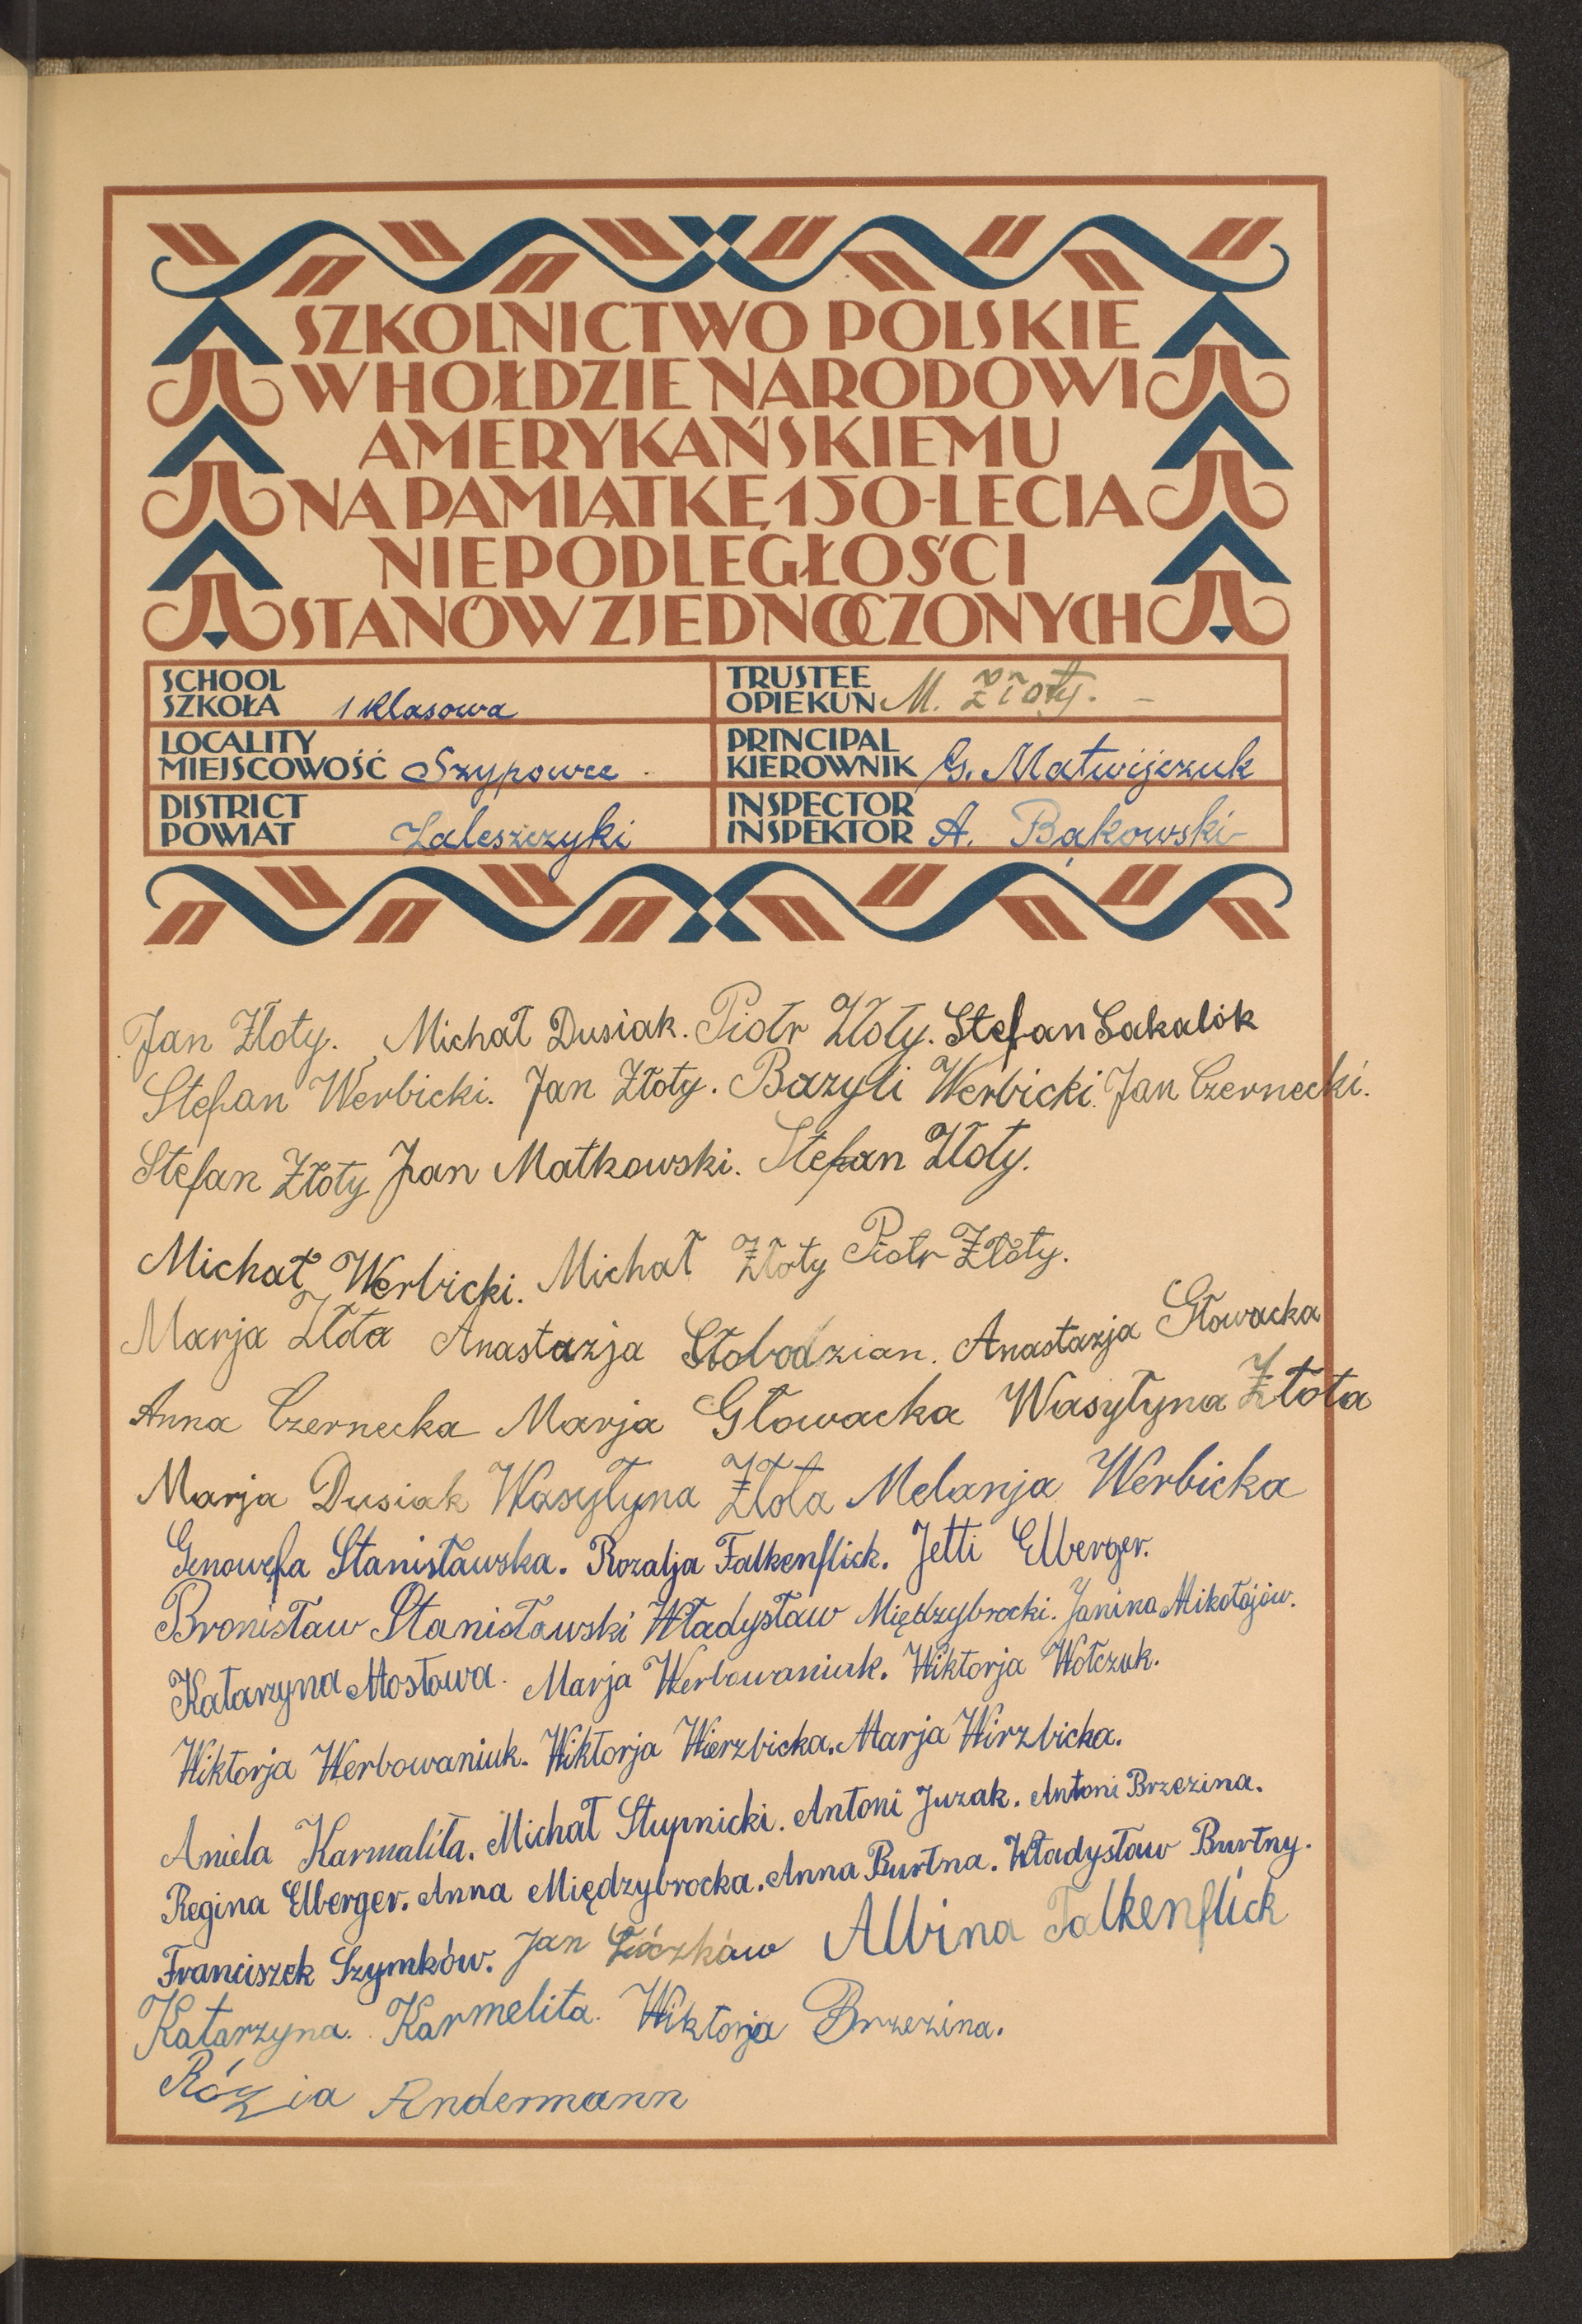 SZKOLNICTWO POLSKIE
W HOŁDZIE NARODOWI
AMERYKAŃSKIEMU
NA PAMIĄTKĘ 150-LECIA
NIEPODLEGŁOŚCI
STANÓW ZJEDNOCZONYCH
SCHOOL
SZKOŁA 1 klasowa
TRUSTEE
OPIEKUN M. Złoty. -
LOCALITY
MIEJSCOWOŚĆ Szypowce.
PRINCIPAL
KIEROWNIK G. Matwijczuk
DISTRICT
POWIAT Zaleszczyki
INSPECTOR
INSPEKTOR A. Bąkowski
Jan Złoty. Michał Dusiak. Piotr Złoty. Stefan Sakalók
Stefan Werbicki. Jan Złoty. Bazyli Werbicki. Jan Czernecki.
Stefan Złoty Jan Matkowski. Stefan Złoty.
Michał Werbicki. Michał Złoty Piotr Złoty.
Marja Złota Anastazja Słobodzian. Anastazja Głowacka
Anna Czernecka Marja Głowacka Wasyłyna Złota
Marja Dusiak Wasyłyna Złota Melanja Werbicka
Genowefa Stanisławska. Rozalja Falkenflick. Jetti Elberger.
Bronisław Stanisławski Władysław Międzybrocki. Janina Mikołajów.
Katarzyna Mostowa. Marja Werbowaniuk. Wiktorja Wołczuk.
Wiktorja Werbowaniuk. Wiktorja Wierzbicka. Marja Wirzbicka.
Aniela Karmalita. Michał Stupnicki. Antoni Juzak. Antoni Brzezina.
Regina Elberger. Anna Międzybrocka. Anna Burtna. Władysław Burtny.
Franciszek Szymków. Jan Albina Falkenflick
Katarzyna. Karmelita. Wiktorja Brzezina.
Rózia Andermann